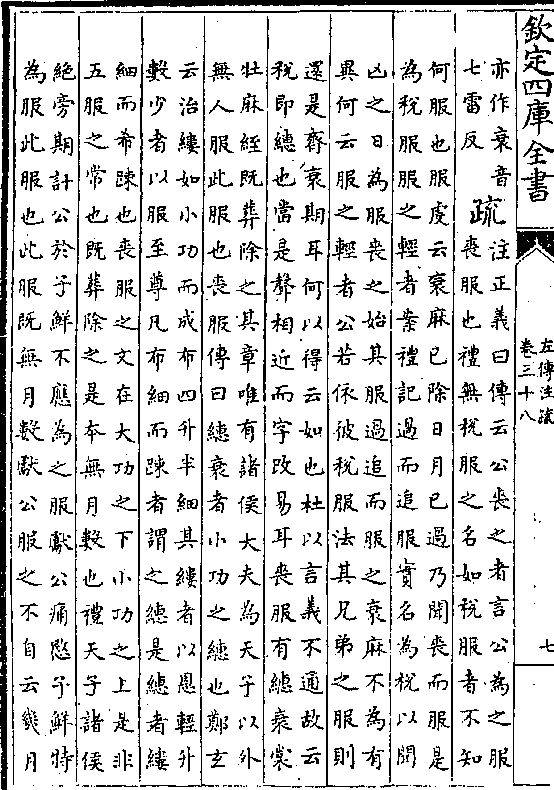 欽定四庫全書
左傳注疏
卷三十八
七
亦作衰音
七雷反
疏
注正義曰傳云公喪之者言公為之服
喪服也禮無稅服之名如稅服者不知
何服也服虔云衰麻已除日月已過乃聞喪而服是
為稅服服之輕者案禮記過而追服實名為稅以聞
凶之日為服喪之始其服過追而服之衰麻不為有
異何云服之輕者公若依彼稅服法其兄弟之服則
還是齊衰期耳何以得云如也杜以言義不通故云
稅即繐也當是聲相近而字改易耳喪服有繐衰裳
牡麻絰既葬除之其章唯有諸侯大夫為天子以外
無人服此服也喪服傳曰繐衰者小功之繐也鄭玄
云治縷如小功而成布四升半細其縷者以恩輕升
數少者以服至尊凡布細而疎者謂之繐是繐者縷
細而希疎也喪服之文在大功之下小功之上是非
五服之常也既葬除之是本無月數也禮天子諸侯
絕旁期計公於子鮮不應為之服獻公痛愍子鮮特
為服此服也此服既無月數獻公服之不自云幾月